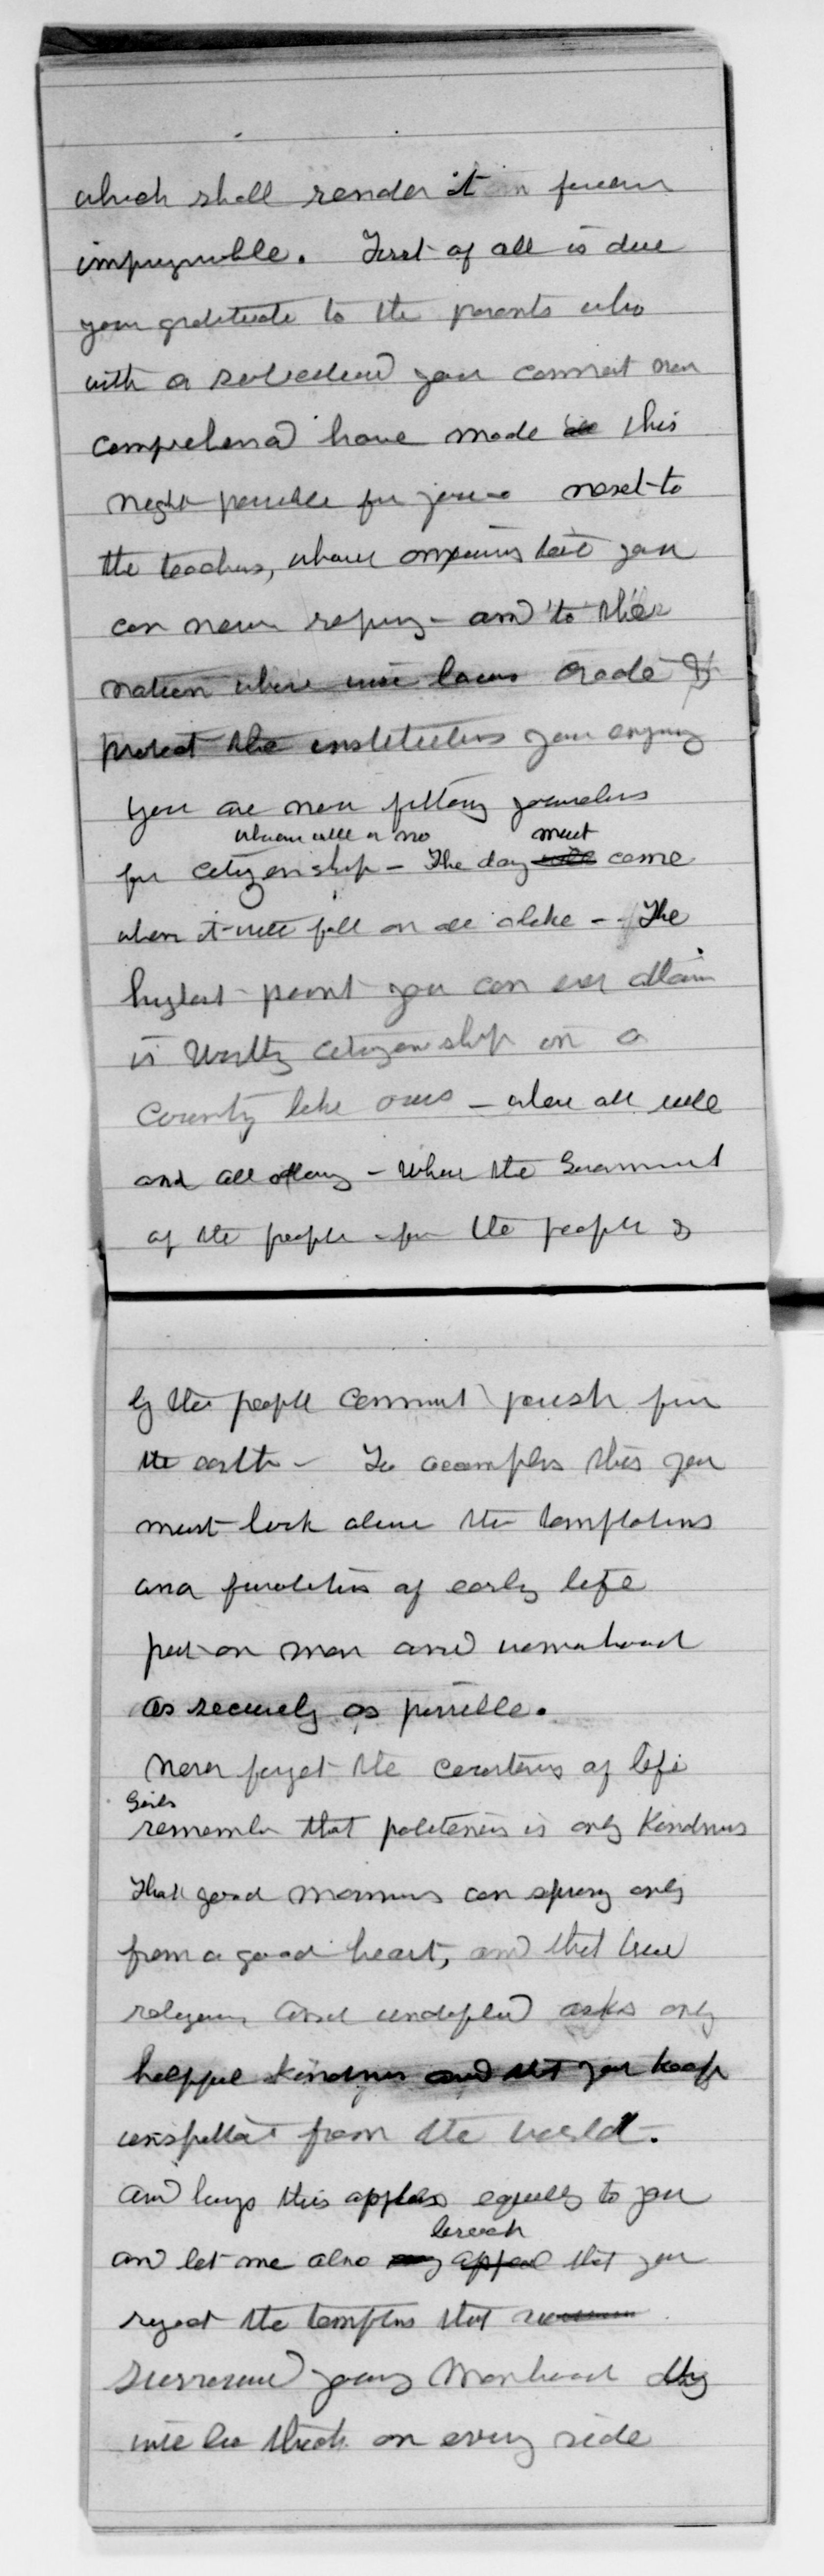 which shall render it forever
impregnable. First of all is due
your gratitude to the parents who
with a solicitude you cannot now
comprehend have made this
night possible for you - next to
the teachers, whose care you
can never repay - and to the
nation whose wise laws create &
protect the institutions you enjoy
you are now fitting yourselves
whether will or no must
for citizenship - The day will come
when it will fall on all alike - The
highest point you can ever attain
is Worthy citizenship in a
Country like ours - where all rule
and all obey - Where the Government
of the people - for the people &
by the people cannot perish from
the earth - To accomplish this you
must look above the temptations
and frivolities of early life
put on man and womanhood
as securely as possible.
Never forget the courtesies of life
Girls
remember that politeness is only Kindness
That good manners can spring only
from a good heart, and that true
religion and undefiled asks only
helpful kindness and that you keep
unspotted from the world.
And boys this applies equally to you
beseech
and let me also my appeal that you
reject the tempters that
Surround young Manhood they
will be thick on every side